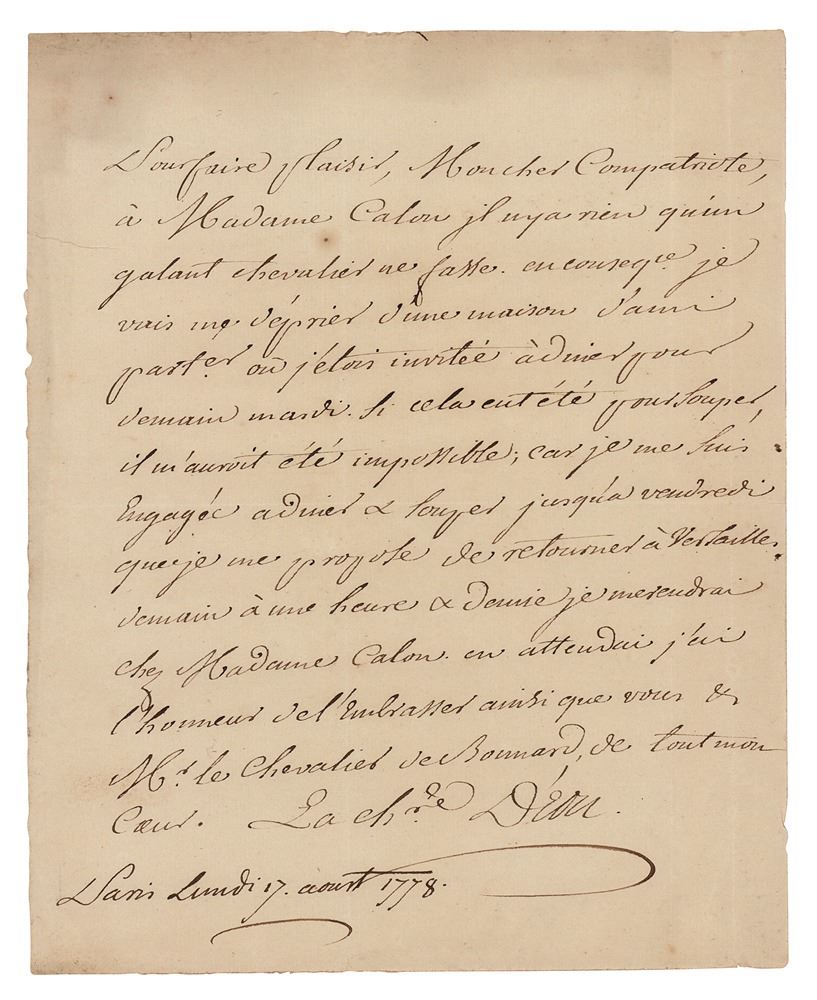 Pour faire plaisir, Mon cher Compatriote,
à Madame Calon jl n'ya rien qu'un
galant chevalier ne fasse. en conseq.ce je
vais me déprier d'une maison d'ami
part.er où j'étois invitée à diner pour
demain mardi. Si cela eut été pour Souper,
il m'auroit été impossible; car je me suis
Engagée a diner & souper jusqu'a vendredi
que je me propose de retourner à Versailles.
demain à une heure & demie je me rendrai
chez Madame Calon. en attendai j'ai
l'honneur de l'Embrasser ainsi que vous &
M.r le Chevalier de Bonnard, de tout mon
Cœur. La ch.re D'Eon.
Paris Lundi 17. aoust 1778.